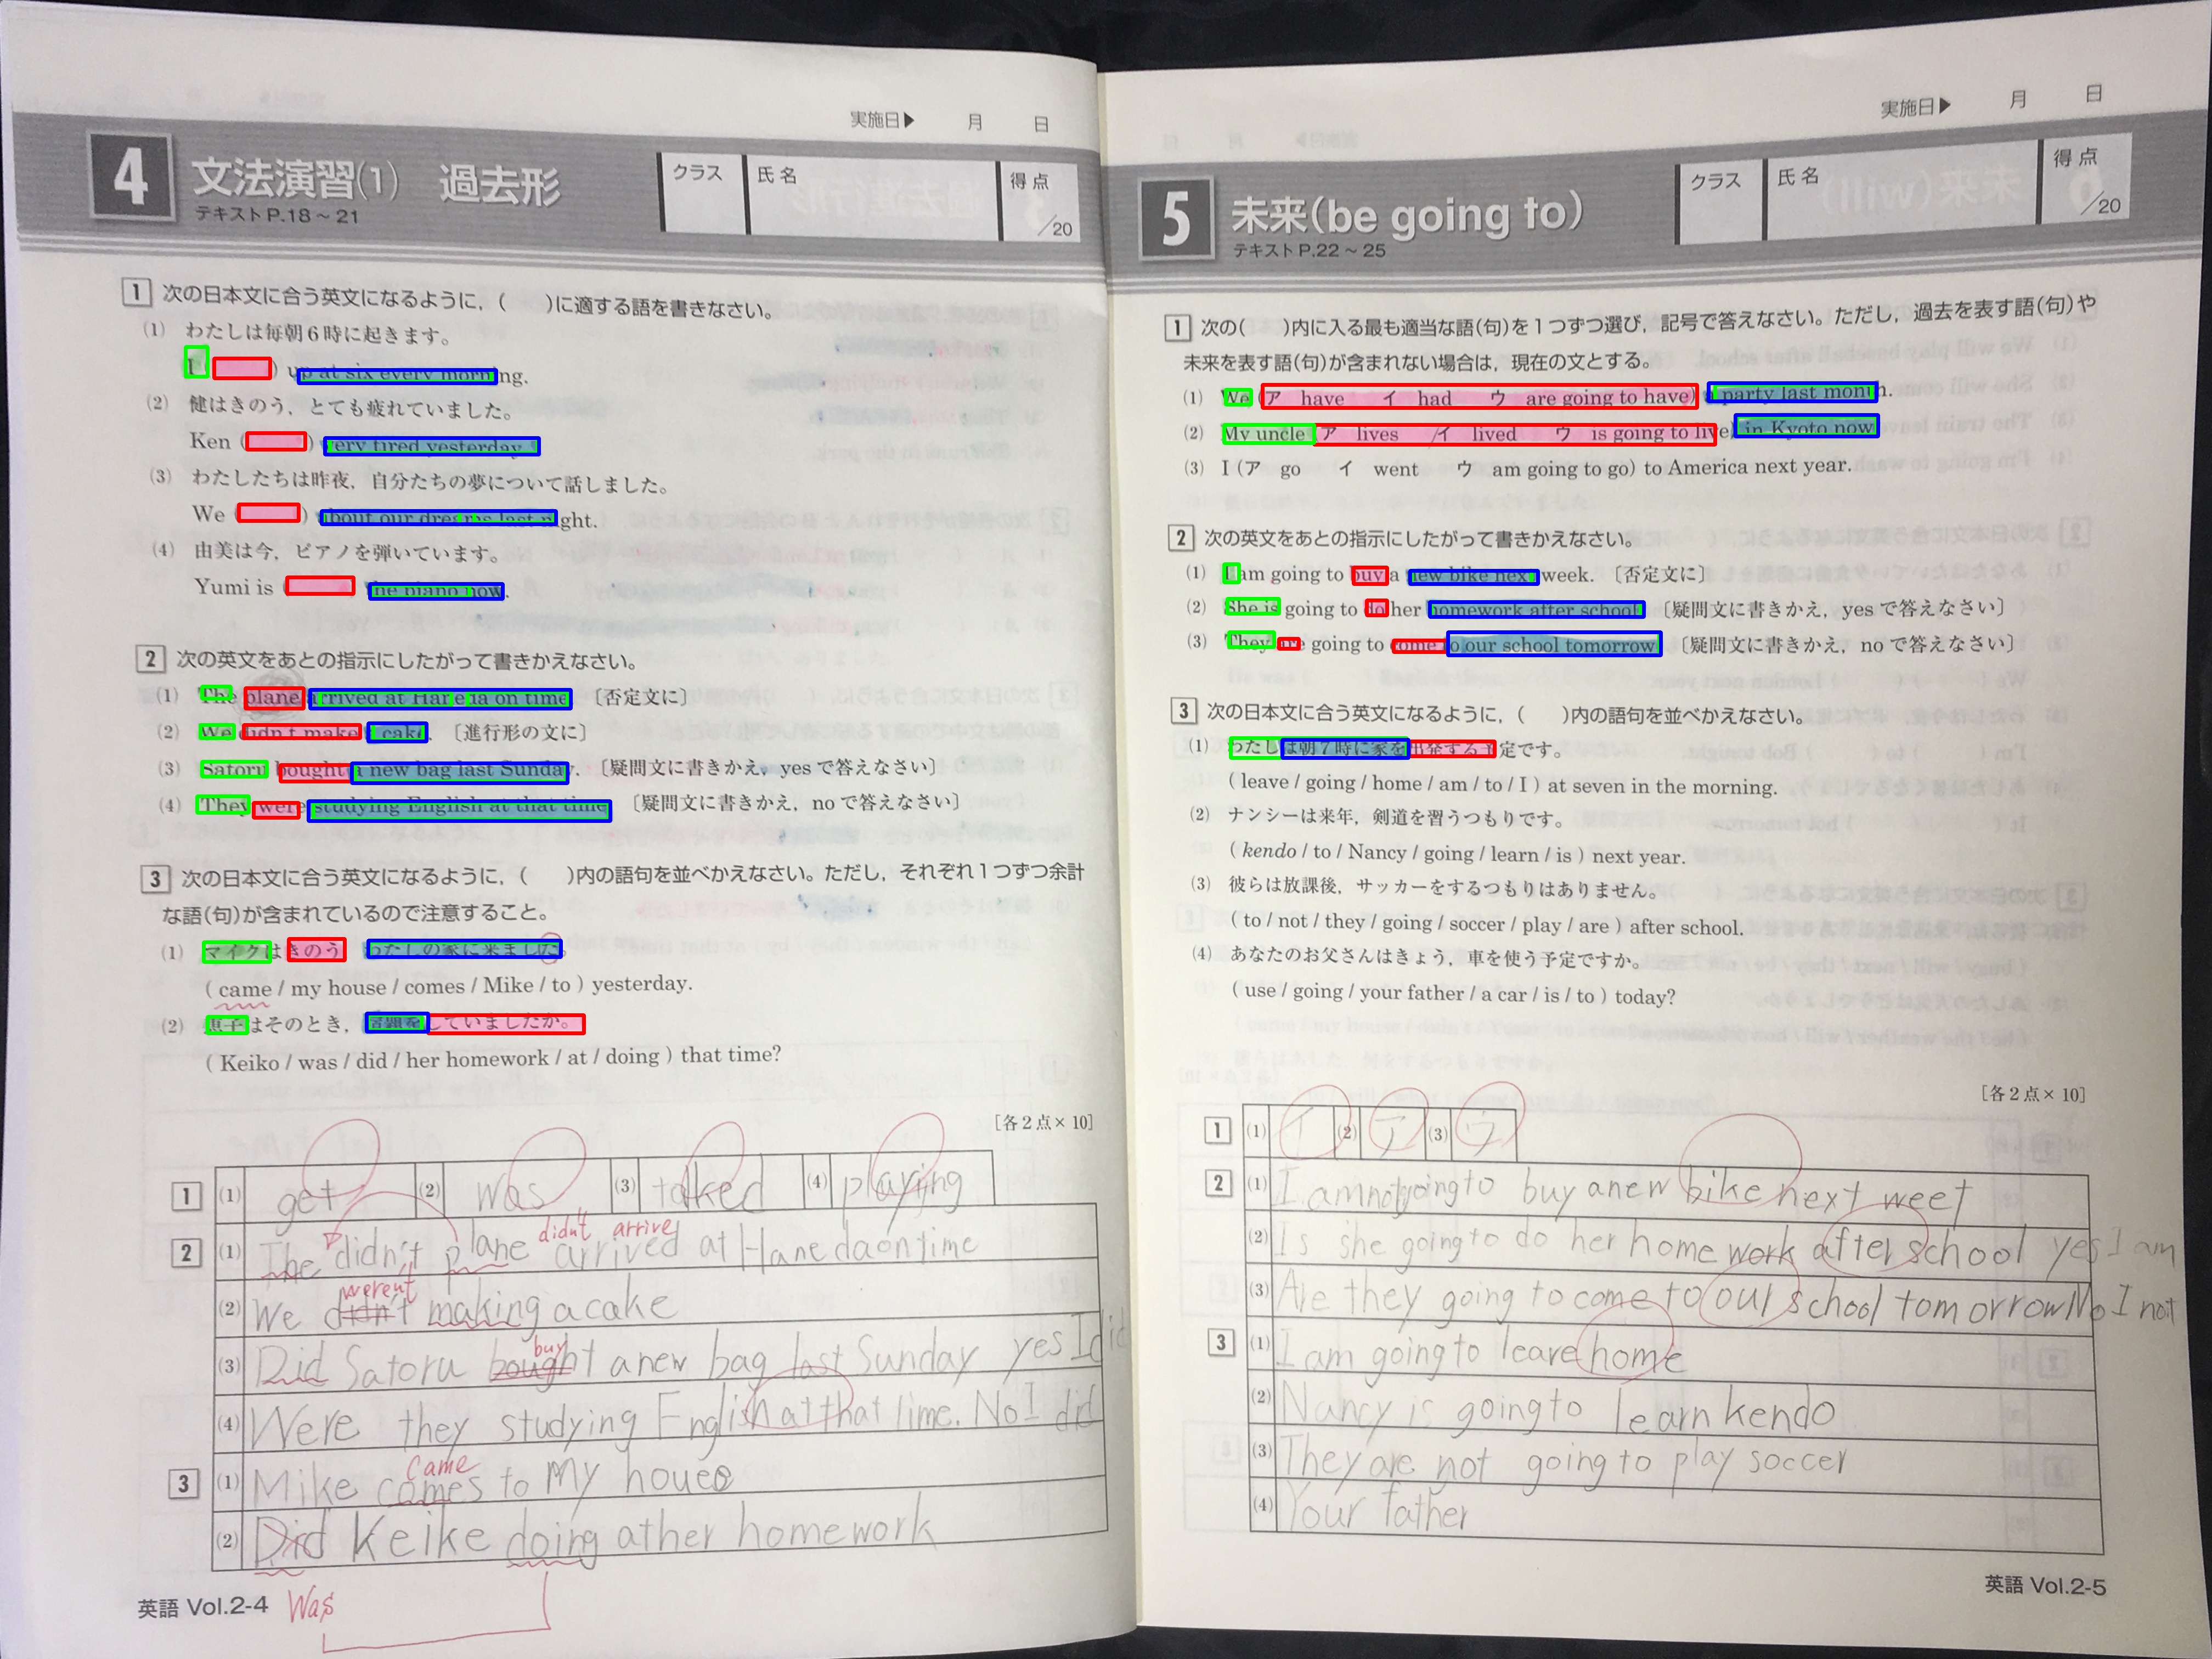 実施日▶ 月 日
4 文法演習(1) 過去形
テキストP.18～21
クラス 氏名 得点 /20
1 次の日本文に合う英文になるように，( )に適する語を書きなさい。
(1) わたしは毎朝6時に起きます。
I ) up at six every morning.
(2) 健はきのう，とても疲れていました。
Ken ( ) very tired yesterday.
(3) わたしたちは昨夜，自分たちの夢について話しました。
We ( ) about our dreams last night.
(4) 由美は今，ピアノを弾いています。
Yumi is ( ) the piano now.
2 次の英文をあとの指示にしたがって書きかえなさい。
(1) The plane arrived at Haneda on time 〔否定文に〕
(2) We didn't make a cake. 〔進行形の文に〕
(3) Satoru bought a new bag last Sunday. 〔疑問文に書きかえ，yesで答えなさい〕
(4) They were studying English at that time 〔疑問文に書きかえ，noで答えなさい〕
3 次の日本文に合う英文になるように，( )内の語句を並べかえなさい。ただし，それぞれ1つずつ余計
な語(句)が含まれているので注意すること。
(1) マイクはきのう わたしの家に来ました。
( came / my house / comes / Mike / to ) yesterday.
(2) 恵子はそのとき，宿題をしていましたか。
( Keiko / was / did / her homework / at / doing ) that time?
[各2点×10]
1 (1) get (2) was (3) talked (4) playing
didn't arrive
2 (1) The didn't plane arrived at Hanedaontime
weren't
(2) We didn't making a cake
buy
(3) Did Satoru bought a new bag last Sunday yes I did
(4) Were they studying English at that time. No I did
came
3 (1) Mike comes to my
(2) Did Keike doing ather homework
Was
英語 Vol.2-4
実施日▶ 月 日
5 未来(be going to)
テキストP.22～25
クラス 氏名 得点 /20
1 次の( )内に入る最も適当な語(句)を1つずつ選び，記号で答えなさい。ただし，過去を表す語(句)や
未来を表す語(句)が含まれない場合は，現在の文とする。
(1) We (ア have イ had ウ are going to have) a party last month.
(2) My uncle (ア lives イ lived ウ is going to live) in Kyoto now
(3) I (ア go イ went ウ am going to go) to America next year.
2 次の英文をあとの指示にしたがって書きかえなさい。
(1) I am going to buy a new bike next week. 〔否定文に〕
(2) She is going to do her homework after school. 〔疑問文に書きかえ，yesで答えなさい〕
(3) They are going to come to our school tomorrow 〔疑問文に書きかえ，noで答えなさい〕
3 次の日本文に合う英文になるように，( )内の語句を並べかえなさい。
(1) わたしは朝7時に家を出発する予定です。
( leave / going / home / am / to / I ) at seven in the morning.
(2) ナンシーは来年，剣道を習うつもりです。
( kendo / to / Nancy / going / learn / is ) next year.
(3) 彼らは放課後，サッカーをするつもりはありません。
( to / not / they / going / soccer / play / are ) after school.
(4) あなたのお父さんはきょう，車を使う予定ですか。
( use / going / your father / a car / is / to ) today?
[各2点×10]
1 (1) イ (2) ア (3) ウ
2 (1) I am not going to buy a new bike next weet
(2) Is she going to do her home work after school yes I am
(3) Are they going to come to our school tomorrow No I not
3 (1) I am going to leave home
(2) Nancy is going to learn kendo
(3) They are not going to play soccer
(4) Your father
英語 Vol.2-5